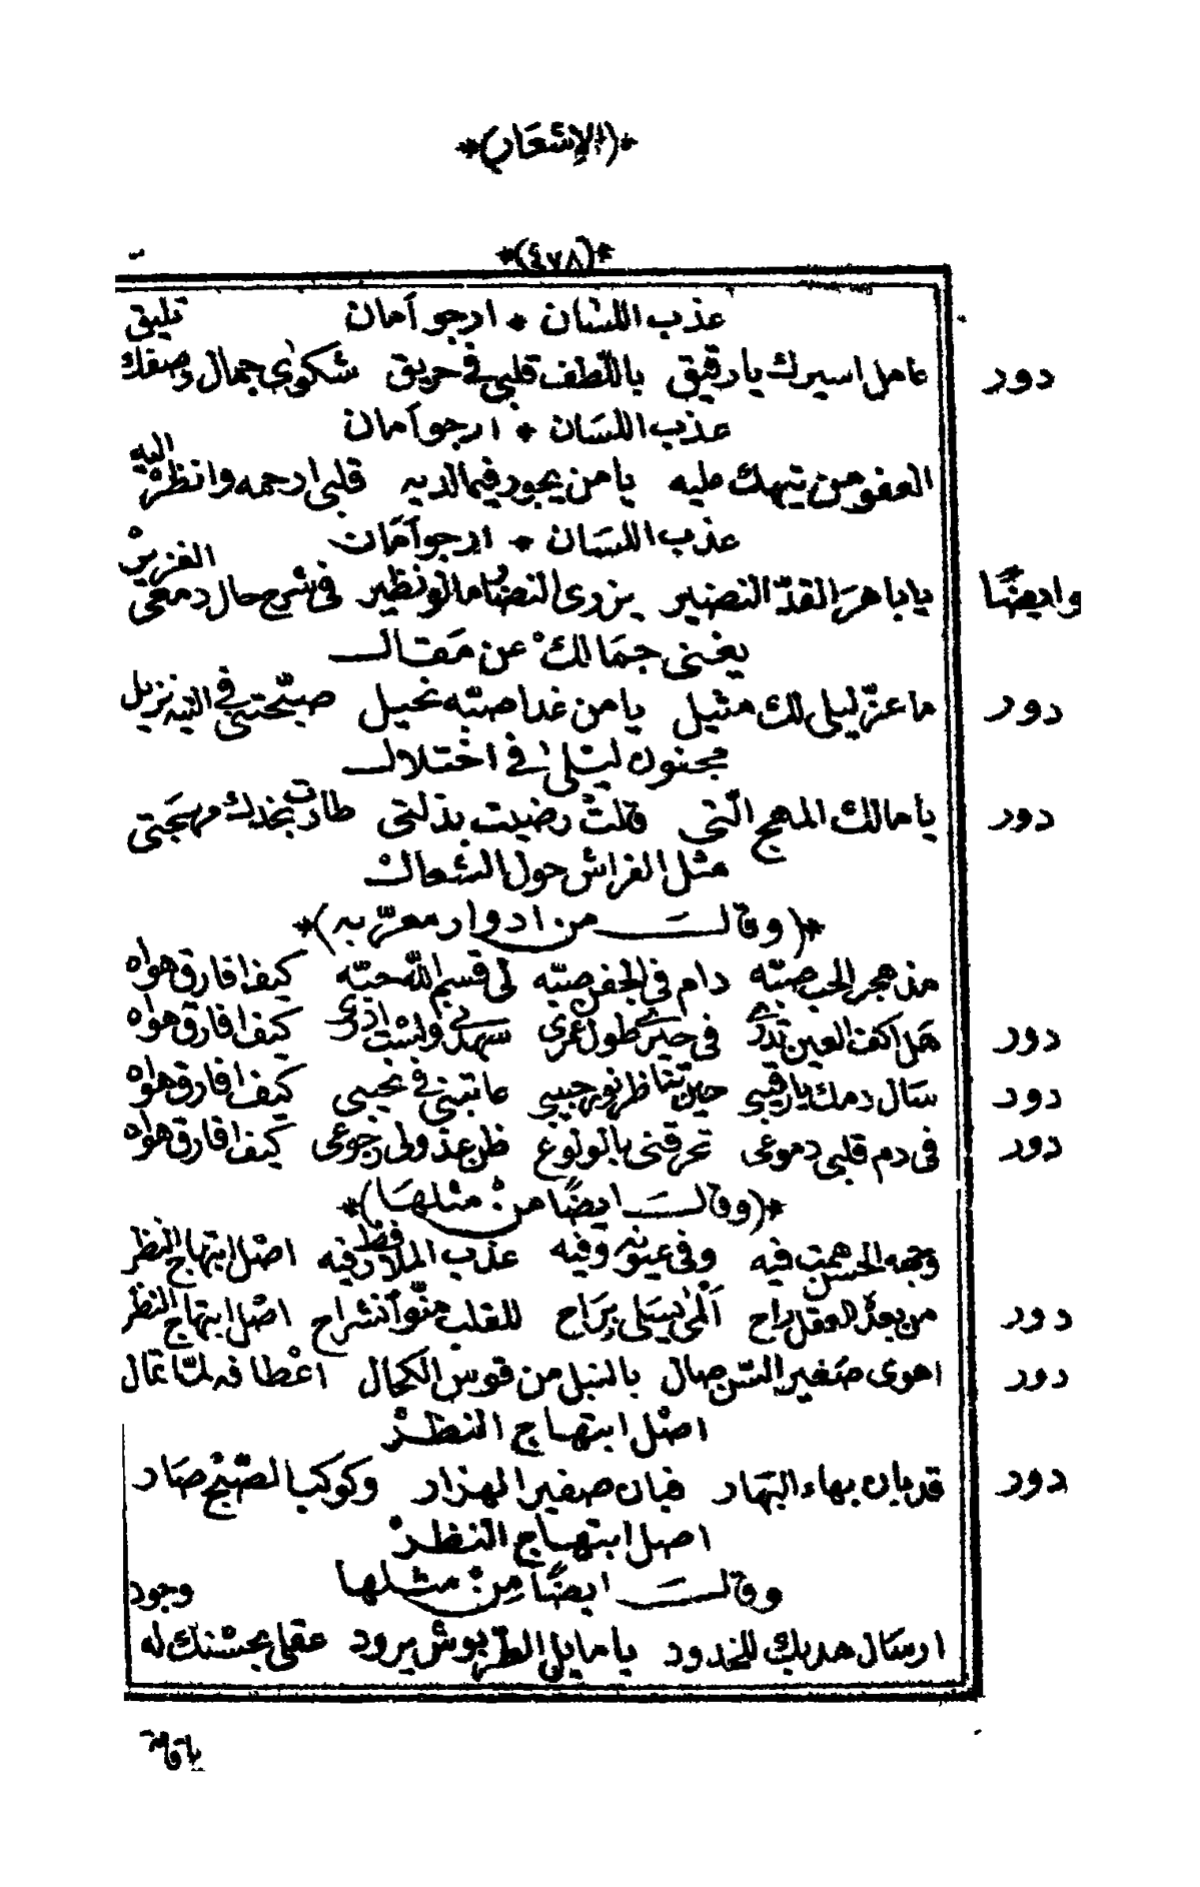 *(الإشعار)*
*(٤٧٨)*
عذب اللسان * ارجو آمان
دور عامل اسيرك يا رقيق باللّطف قلبي في حريق شكواى جمال وصفك تليق
عذب اللسَان * ارجو آمان
العفو من تيهك عليه يا من يجور فيما لديه قلبى ارحمه وانظرْ اليه
عذب اللسَان * ارجو آمَان
وايضًا ياباهرَ القدّ النضير يزرى النضار ما لو نظير فى شرح حال دمعى الغزيرْ
يغنى جمَالكْ عن مَقال
دور ما عزّ ليلى لك مثيل يا من غدا صبّه نحيل صبّحتنى فى التيه نزيل
مجنون ليْلى فى اخْتلال
دور يا مالك المهج الّتى قلتْ رضيت بذلتى طارت بخدك مهجَتى
مثل الفراش حول الشعالْ
*(وقالَ من ادوار معرّبه)*
مذ هجر الحب صبّه دام فى الجفن صبّه لى قسم اللّه حبّه كيف افارق هواه
دور هَل اكف العين تدرى فى حيرى طول عمرى سهدنى ولسْت ادرى كيف افارق هواه
دور سَال دمك يا رقيبى حين تناظر نور حبيبى عاتبنى فى نحيبى كيف افارق هواه
دور فى دم قلبى دموعى تحرقنى بالولوع ظن عذولى رجوعى كيف افارق هواه
*(وقالَ ايضًا منْ مثلهَا)*
وجهه الحسن همت فيه وفى عيونه وفيه عذب الملافظ رفيه اصْل ابتهاج النظر
دور من بعدْ العقل راح ألْمى يسلى بِرَاح للقلب منّو انشراح اصْل ابتهاج النظرْ
دور اهوى صَغير السّن صال بالنبل من قوس الكحال اعْطافه لمّا تمال
اصْل ابتهاج النظرْ
دور قد بان بهاء النهار فبان صفير الهزار وكوكب الصّبْح صَار
اصل ابتهاج النظرْ
وقالَ ايضًا مِنْ مثلها
ارسَال هدبك للخدود يا مايل الطربوش برود عقلى بحسْنك له وجود
يا قامة